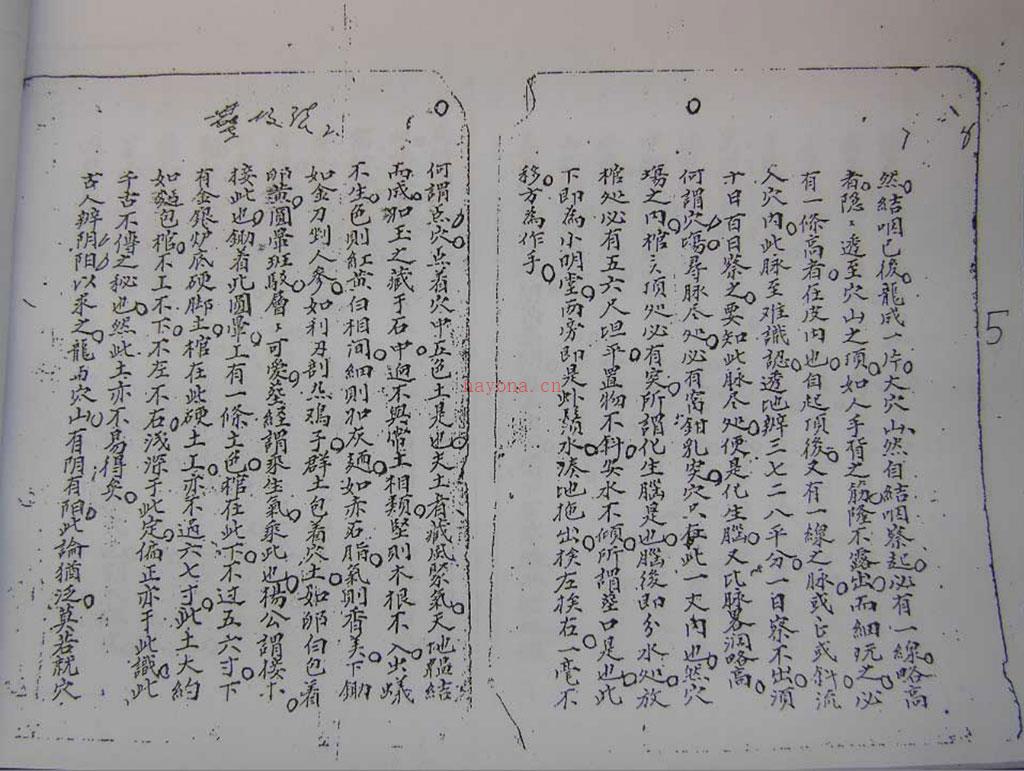 然結咽已後龍成一片大穴山然自結咽發起必有一線略高
者隱〻透至穴山之頂如人手背之筋隆不露出而細玩之必
有一條高者在皮內也自起頂後又有一線之脉或正或斜流
入穴內此脉至难識認透地辨三七二八平分一日察不出須
十日百日察之要知此脉尽处便是化生腦又比脉畧濶略高
何謂穴塲尋脉尽处必有窩钳乳突穴只在此一丈內也然穴
塲之內棺之頂处必有突所謂化生腦是也腦後即分水处放
棺处必有五六尺坦平置物不斜安水不傾所謂塟口是也此
下即為小明堂両旁即是虾鬚水湊地拖出挨左挨右一毫不
移方為作手
何謂点穴点着穴中五色土是也夫土者藏風聚氣天地融結
而成如玉之藏于石中逈不與常土相類堅則木根不入虫蟻
不生色則紅黄白相间細則如灰麺如赤石脂氣則香美下鋤
如金刀剉人参如利刃剖魚鴉子群土包着穴土如卵白包着
卵黄圓暈班駁層〻可愛塟經謂乘生氣乘此也楊公謂接木
接此也鋤着此圓暈上有一條土色棺在此下不过五六寸下
有金銀炉底硬脚土棺在此硬土上亦不过六七寸此土大約
如�包棺不上不下不左不右浅深于此定偏正亦于此識此
千古不傳之秘也然此土亦不易得矣
古人辨阴阳以求之龍与穴山有阴有阳此論猶泛莫若就穴
5
nayona.cn